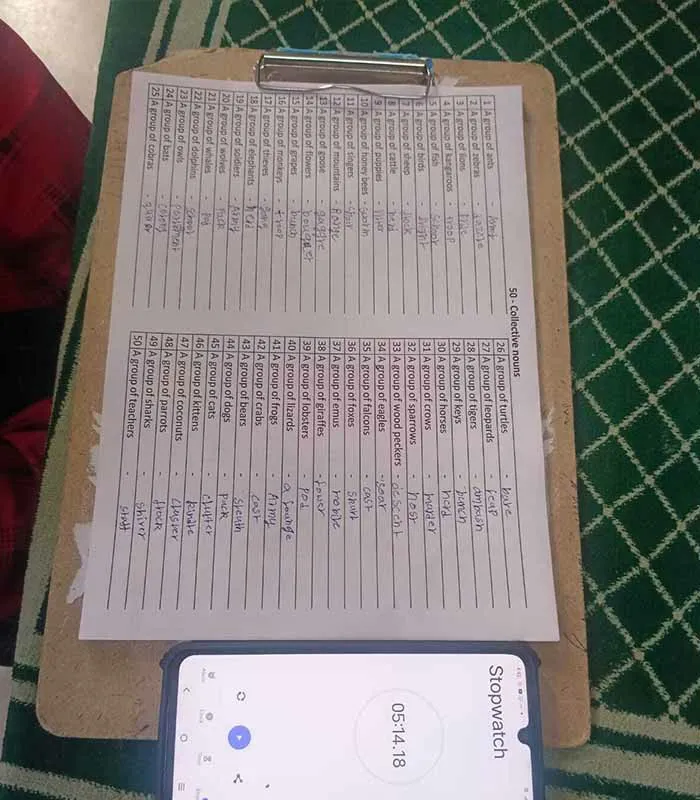 50 - Collective nouns
1 A group of ants -
2 A group of zebras -
3 A group of lions - Pride
4 A group of kangaroos - troop
5 A group of fish - school
6 A group of birds - flight
7 A group of sheep - flock
8 A group of cattle - herd
9 A group of puppies - litter
10 A group of honey bees - swarm
11 A group of singers - choir
12 A group of mountains - Range
13 A group of goose - gaggle
14 A group of flowers -
15 A group of grapes - bunch
16 A group of monkeys - troop
17 A group of thieves - Gang
18 A group of elephants - herd
19 A group of soldiers - Army
20 A group of wolves - Pack
21 A group of whales - Pod
22 A group of dolphins - school
23 A group of owls -
24 A group of bats - colony
25 A group of cobras - quiver
26 A group of turtles - bare
27 A group of leopards - leap
28 A group of tigers - ambush
29 A group of keys - bunch
30 A group of horses - herd
31 A group of crows - murder
32 A group of sparrows - host
33 A group of wood peckers - descent
34 A group of eagles -
35 A group of falcons - cast
36 A group of foxes -
37 A group of emus -
38 A group of giraffes - tower
39 A group of lobsters - pod
40 A group of lizards - a lounge
41 A group of frogs - Army
42 A group of crabs - cast
43 A group of bears - sleuth
44 A group of dogs - pack
45 A group of cats - clutter
46 A group of kittens - kindle
47 A group of coconuts - cluster
48 A group of parrots - flock
49 A group of sharks - shiver
50 A group of teachers - staff
Stopwatch
05:14.18